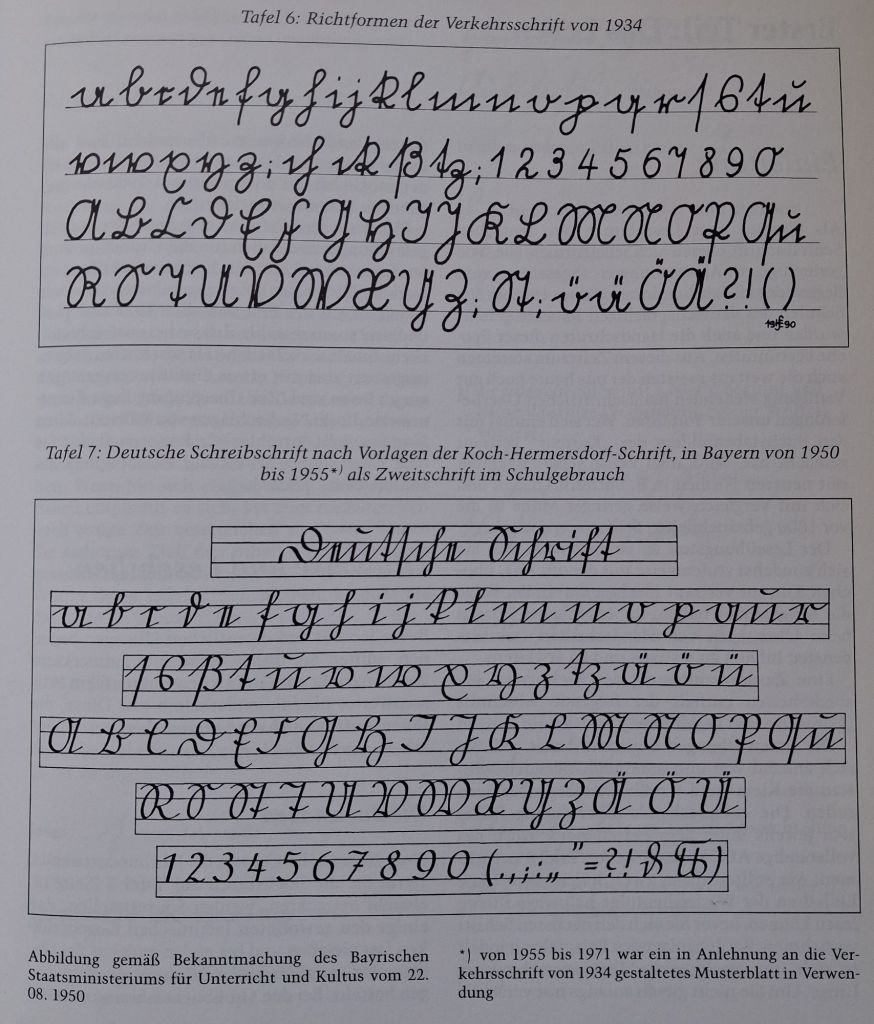 Tafel 6: Richtformen der Verkehrsschrift von 1934
a b c d e f g h i j k l m n o p q r ſ s t u
v w x y z ; ch ck ß tz ; 1 2 3 4 5 6 7 8 9 0
A B C D E F G H I J K L M N O P Qu
R S T U V W X Y Z ; St ; ö ü Ö Ä ? ! ( )
Tafel 7: Deutsche Schreibschrift nach Vorlagen der Koch-Hermersdorf-Schrift, in Bayern von 1950
bis 1955*) als Zweitschrift im Schulgebrauch
Deutſche Schrift
a b c d e f g h i j k l m n o p qu r
ſ s ß t u v w x y z tz ä ö ü
A B C D E F G H I J K L M N O P Qu
R S St T U V W X Y Z Ä Ö Ü
1 2 3 4 5 6 7 8 9 0 ( . , ; : „ " = ? ! )
Abbildung gemäß Bekanntmachung des Bayrischen
Staatsministeriums für Unterricht und Kultus vom 22.
08. 1950
*) von 1955 bis 1971 war ein in Anlehnung an die Ver-
kehrsschrift von 1934 gestaltetes Musterblatt in Verwen-
dung